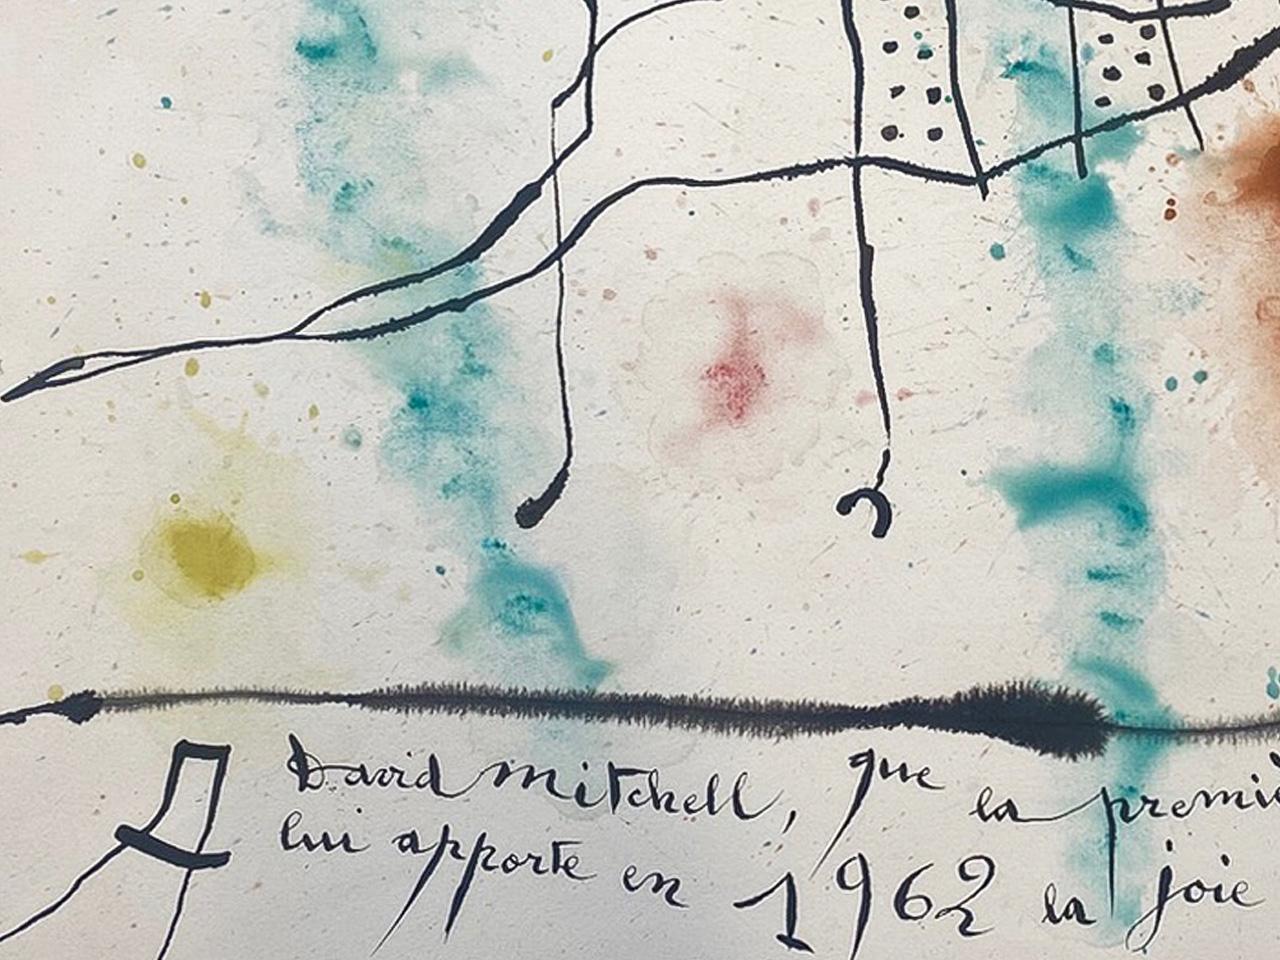 A David mitchell, que la premiè
lui apporte en 1962 la joie